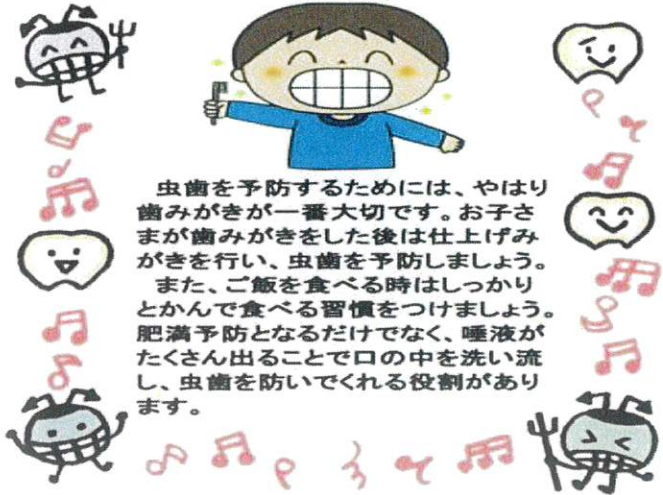 虫歯を予防するためには、やはり
歯みがきが一番大切です。お子さ
まが歯みがきをした後は仕上げみ
がきを行い、虫歯を予防しましょう。
また、ご飯を食べる時はしっかり
とかんで食べる習慣をつけましょう。
肥満予防となるだけでなく、唾液が
たくさん出ることで口の中を洗い流
し、虫歯を防いでくれる役割があり
ます。